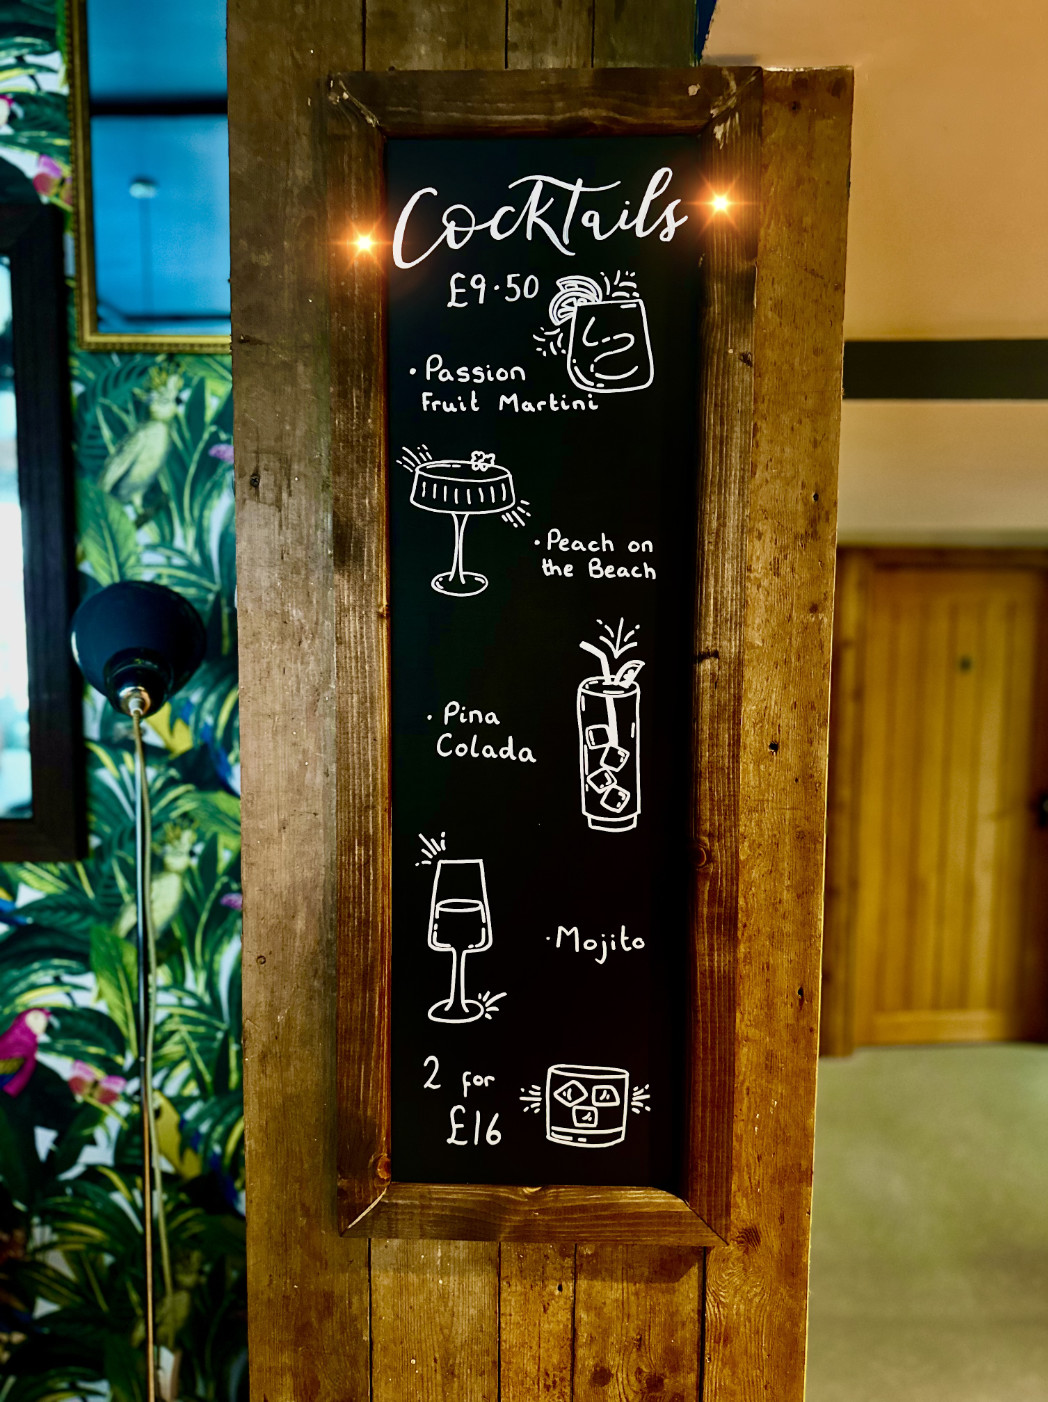 Cocktails
£9.50
• Passion
Fruit Martini
• Peach on
the Beach
• Pina
Colada
• Mojito
2 for
£16